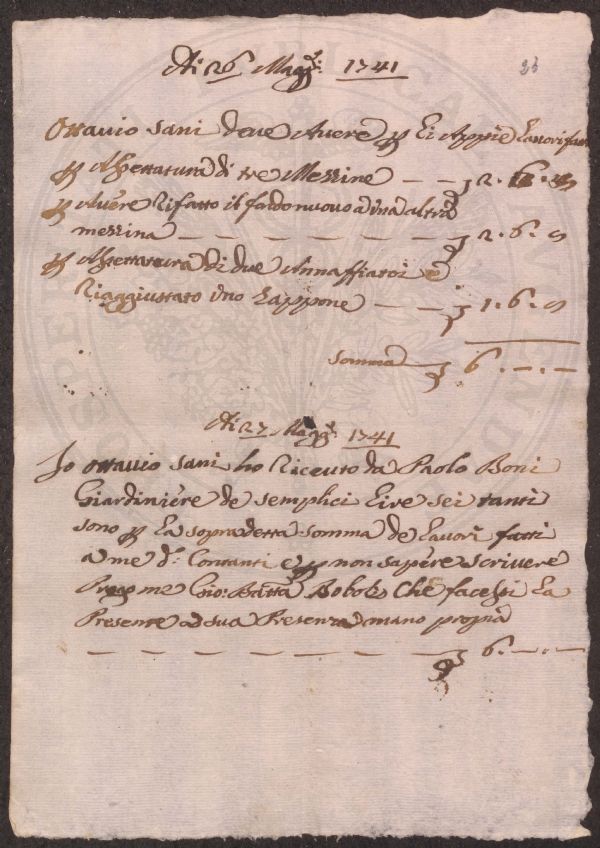 Ai 26 Magg:º 1741
23
Ottavio Sani deve Avere p Li Appiè Lavori fatti
p Assettatura di tre Mezzine — — 2. 6. 8
p Avere Rifatto il fondo nuovo a una altra
mezzina — — — — — — — 2. 6. 8
p Assettatura di due Annaffiatoi e
Riaggiustato uno Zappone — — 1. 6. 8
Somma — 6. — . —
Ai 27 Magg:º 1741
Io Ottavio Sani ho Riceuto da Paolo Boni
Giardiniére de semplici Lire sei tanti
sono p La sopradetta somma de Lavori fatti
a me d.º Contanti e p non sapére scrivere
Pregò me Gio: Batta Che facessi La
Presente a sua Presenza mano propria
— — — — — — — 6. — . —